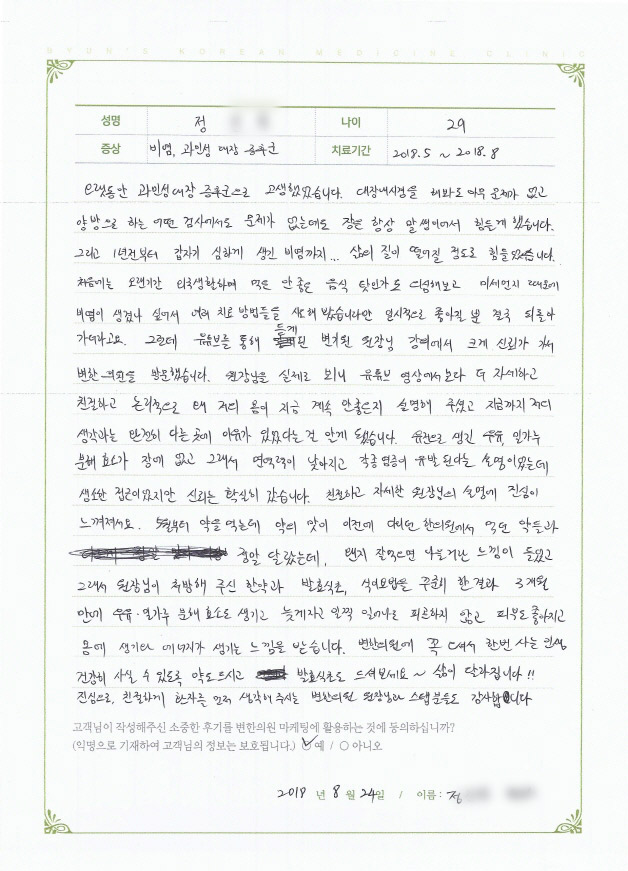 BYUN'S KOREAN MEDICINE CLINIC
성명 정 나이 29
증상 비염, 과민성 대장 증후군 치료기간 2018.5 ~ 2018.8
오랫동안 과민성대장 증후군으로 고생했었습니다. 대장내시경을 해봐도 아무 문제가 없고
양방으로 하는 어떤 검사에서도 문제가 없는데도 장은 항상 말썽이어서 힘들게 했습니다.
그리고 1년전부터 갑자기 심하게 생긴 비염까지... 삶의 질이 떨어질 정도로 힘들었습니다.
처음에는 오랜기간 외국생활하며 먹은 안좋은 음식 탓인가도 의심해보고 미세먼지 때문에
비염이 생겼나 싶어서 여러 치료 방법들을 시도해 봤습니다만 일시적으로 좋아질 뿐 결국 되돌아
가더라고요. 그런데 유튜브를 통해 듣게된 변기원 원장님 강의에서 크게 신뢰가 가서
변한의원을 방문했습니다. 원장님을 실제로 뵈니 유튜브 영상에서보다 더 자세하고
친절하고 논리적으로 왜 저의 몸이 지금 계속 안좋은지 설명해 주셨고 지금까지 저의
생각과는 완전히 다른 곳에 이유가 있었다는 걸 알게 됐습니다. 유전으로 생긴 우유, 밀가루
분해 효소가 장에 없고 그래서 면역력이 낮아지고 각종 염증이 유발된다는 설명이었는데
생소한 접근이었지만 신뢰는 확실히 갔습니다. 친절하고 자세한 원장님의 설명에 진심이
느껴져서요. 5월부터 약을 먹는데 약의 맛이 이전에 다니던 한의원에서 먹던 약들과
정말 달랐는데, 왠지 잘먹으면 나을거란 느낌이 들었고
그래서 원장님이 처방해 주신 한약과 발효식초, 식이요법을 꾸준히 한 결과 3개월
만에 우유·밀가루 분해 효소도 생기고 늦게자고 일찍 일어나도 피곤하지 않고 피부도 좋아지고
몸에 생기와 에너지가 생기는 느낌을 받습니다. 변한의원에 꼭 오셔서 한번 사는 인생
건강히 사실 수 있도록 약도 드시고 발효식초도 드셔보세요~ 삶이 달라집니다!!
진심으로, 친절하게 환자를 먼저 생각해주시는 변한의원 원장님과 스탭분들도 감사합니다
고객님이 작성해주신 소중한 후기를 변한의원 마케팅에 활용하는 것에 동의하십니까?
(익명으로 기재하여 고객님의 정보는 보호됩니다.) ✓ 예 / ○ 아니오
2018 년 8 월 24일 / 이름 : 정